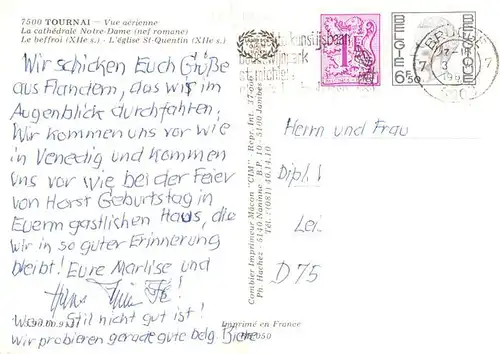 7500 TOURNAI – Vue aérienne
La cathédrale Notre-Dame (nef romane)
Le beffroi (XIIe s.) - L'église St-Quentin (XIIe s.)
Wir schicken Euch Grüße
aus Flandern, das wir im
Augenblick durchfahren.
Wir kommen uns vor wie
in Venedig und kommen
uns vor wie bei der Feier
von Horst Geburtstag in
Euerm gastlichen Haus, die
wir in so guter Erinnerung
bleibt! Eure Marlise und
Hans
Stil nicht gut ist!
wir probieren gerade gute belg. Biere
Combier Imprimeur Mâcon "CIM" - Repr. Int.
Ph. Hachez - 5140 Naninne - B.P. 10 - 5100 Jambes
Tél. (081) 40.14.10
Imprimé en France
1F
BELGIE
BELGIQUE
650
BRUGGE
7
7
Herrn und Frau
Dipl.
Lei
D 75